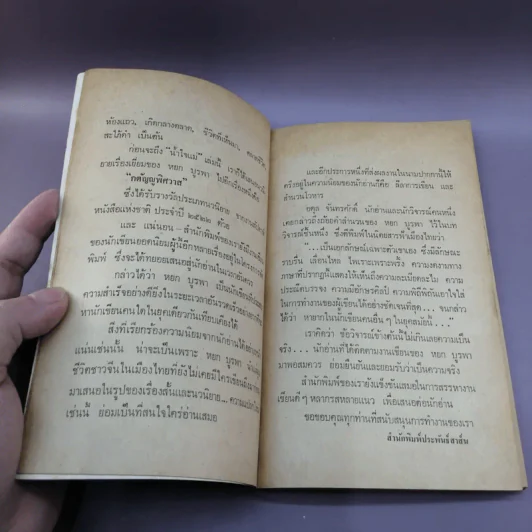 ห้องแถว, เกิดกลางตลาด, ชีวิตที่เห็นมา,
สะใภ้คำ เป็นต้น
ก่อนจะถึง "น้ำใจแม่" เล่มนี้ เราได้
ของ หยก บูรพา ไปอีกเรื่องหนึ่งคือ
"กตัญญูพิศวาส"
ซึ่งได้รับรางวัลประเภทนวนิยาย จาก
หนังสือแห่งชาติ ประจำปี ๒๕๒๓ ด้วย
และ แน่นอน—สำนักพิมพ์ของเรายังมี
ของนักเขียนยอดนิยมผู้นี้อีกหลายเรื่องอยู่ใน
พิมพ์ ซึ่งจะได้ทยอยเสนอสู่นักอ่านในเวลา
กล่าวได้ว่า หยก บูรพา เป็นนักเขียน
ความสำเร็จอย่างดียิ่งในระยะเวลาอันรวดเร็ว
หานักเขียนคนใดในยุคเดียวกันเทียบเคียงได้
สิ่งที่เรียกร้องความนิยมจากนักอ่านได้
แน่นเช่นนั้น น่าจะเป็นเพราะ หยก บูรพา
ชีวิตชาวจีนในเมืองไทยที่ยังไม่เคยมีใครเขียน
มาเสนอในรูปของเรื่องสั้นและนวนิยาย...
เช่นนี้ ย่อมเป็นที่สนใจใคร่อ่านเสมอ
และอีกประการหนึ่งที่ส่งผลงานในนามปากกานี้ให้
ตรึงอยู่ในความนิยมของนักอ่านก็คือ ลีลาการเขียน และ
สำนวนโวหาร
อตุล จันทรศักดิ์ นักอ่านและนักวิจารณ์คนหนึ่ง
เคยกล่าวถึงเกี่ยวกับสำนวนของ หยก บูรพา ไว้ในบท
วิจารณ์ชิ้นหนึ่ง ซึ่งตีพิมพ์ในนิตยสารฟ้าเมืองไทยว่า
"...เป็นเอกลักษณ์เฉพาะตัวเขาเอง ซึ่งมีลักษณะ
ราบรื่น เลื่อนไหล ไพเราะเพราะพริ้ง ความงดงามทาง
ภาษาที่ปรากฏนั้นแสดงให้เห็นถึงความละเอียดละไม ความ
ประณีตบรรจง ความมีอักษรศิลป์ ความพิถีพิถันเอาใจใส่
ในการทำงานของผู้เขียนได้อย่างชัดเจนที่สุด... จนกล่าว
ได้ว่า หายากในนักเขียนคนอื่น ๆ ในยุคสมัยนี้..."
เราคิดว่า ข้อวิจารณ์ข้างต้นนี้ไม่เกินเลยความเป็น
จริง... นักอ่านที่ได้ติดตามงานเขียนของ หยก บูรพา
มาพอสมควร ย่อมยืนยันและยอมรับว่าเป็นความจริง
สำนักพิมพ์ของเรายังแข็งขันเสมอในการสรรหางาน
เขียนดี ๆ หลากรสหลายแนว เพื่อเสนอต่อนักอ่าน
ขอขอบคุณทุกท่านที่สนับสนุนการทำงานของเรา
สำนักพิมพ์ประพันธ์สาส์น